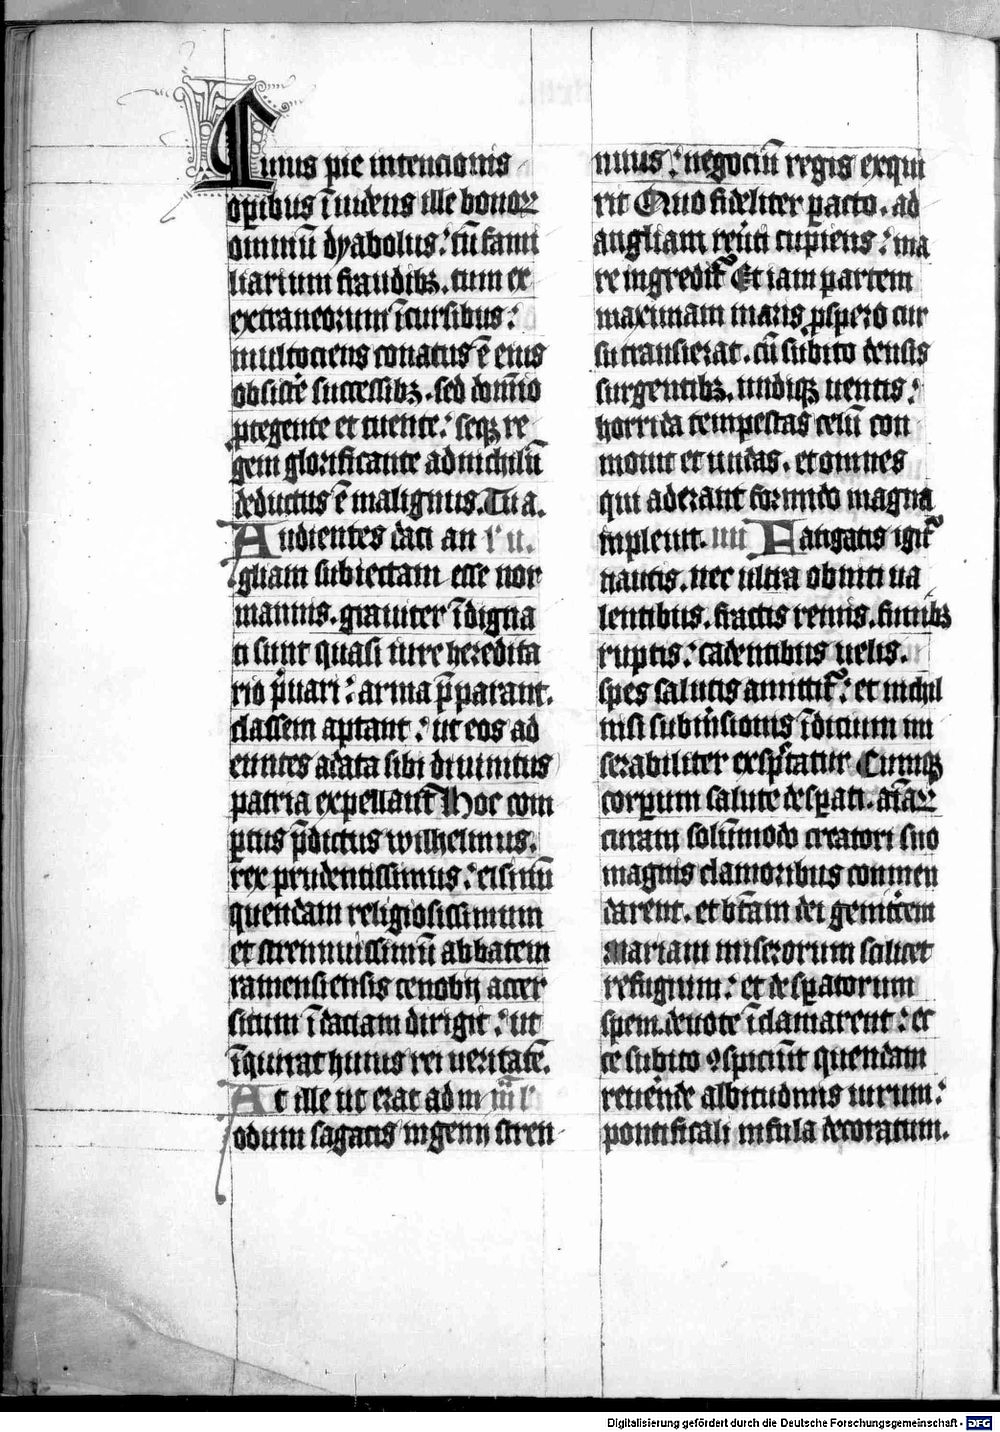 Cuius pie intencionis
oꝑibus ĩuidens ille bonoꝝ
omniũ dyabolus : cũ fami
liarium fraudibꝫ . tum ex
extraneorum ĩcursibus :
multociens conatus ẽ eius
obsistẽ successibꝫ . sed domĩo
ꝓtegente et tuente : seqꝫ re
gem glorificante ad nichilũ
deductus ẽ malignus . Tu a.
Audientes daci an l' ii.
gliam subiectam esse nor
mannis . grauiter ĩdigna
ti sunt quasi iure heredita
rio p̃uari : arma p̃parant .
classem aptant : ut eos ad
euntes a data sibi diuinitus
patria expellant Hoc com
ꝑtus p̃dictus wilhelmus .
rex prudentissimus : elsinũ
quendam religiosissimum
et strennuissimũ abbatem
ramensiensis cenobij accer
situm ĩ daciam dirigit : ut
ĩquirat huius rei ueritatẽ .
At ille ut erat adm iiiͣ l'
odum sagacis ingenij stren
nuus : negociũ regis exqui
rit Quo fideliter ꝑacto . ad
angliam reũti cupiens : ma
re ingredit̃ Et iam partem
maximam maris ꝓspero cur
su transierat . cũ subito densis
surgentibꝫ . undiqꝫ uentis :
horrida tempestas celũ con
mouit et undas . et omnes
qui aderant formido magna
inpleuit . iiii Fatigatis igit̃
nautis . nec ultra obniti ua
lentibus . fractis remis . funibꝫ
ruptis : cadentibus uelis .
spes salutis amittit̃ : et nichil
nisi submĩsionis ĩdicium mi
serabiliter exsp̃tatur Cumqꝫ
corꝑum salute desꝑati . aĩaꝝ
curam solũmodo creatori suo
magnis clamoribus conmen
darent . et bt̃am dei genitc̃em
Mariam miserorum scilicet
refugium : et desꝑatorum
spem . deuote ĩclamarent : ec
ce subito ꝯspiciũt quendam
reuẽnde albitudinis uirum :
pontificali infula decoratum .
Digitalisierung gefördert durch die Deutsche Forschungsgemeinschaft - DFG